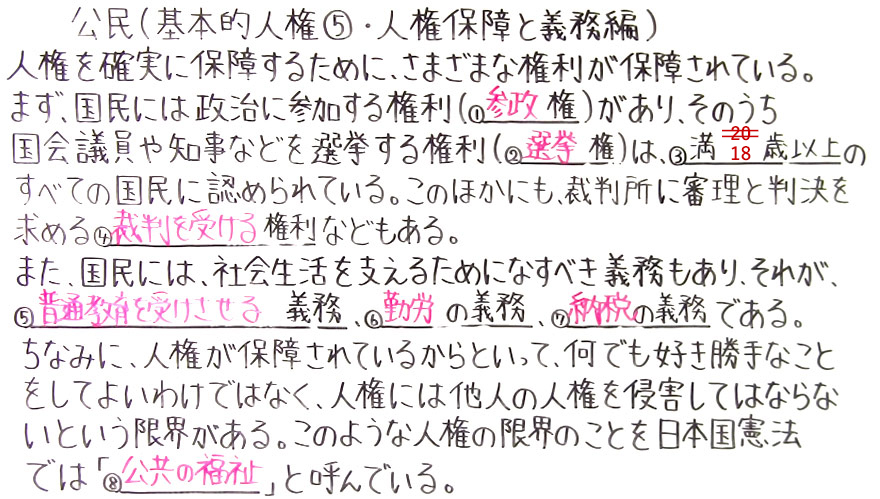 公民(基本的人権⑤・人権保障と義務編)
人権を確実に保障するために、さまざまな権利が保障されている。
まず、国民には政治に参加する権利(①参政権)があり、そのうち
国会議員や知事などを選挙する権利(②選挙権)は、③満 20 18 歳以上の
すべての国民に認められている。このほかにも、裁判所に審理と判決を
求める④裁判を受ける権利などもある。
また、国民には、社会生活を支えるためになすべき義務もあり、それが、
⑤普通教育を受けさせる 義務、⑥勤労の義務、⑦納税の義務である。
ちなみに、人権が保障されているからといって、何でも好き勝手なこと
をしてよいわけではなく、人権には他人の人権を侵害してはならな
いという限界がある。このような人権の限界のことを日本国憲法
では「⑧公共の福祉」と呼んでいる。